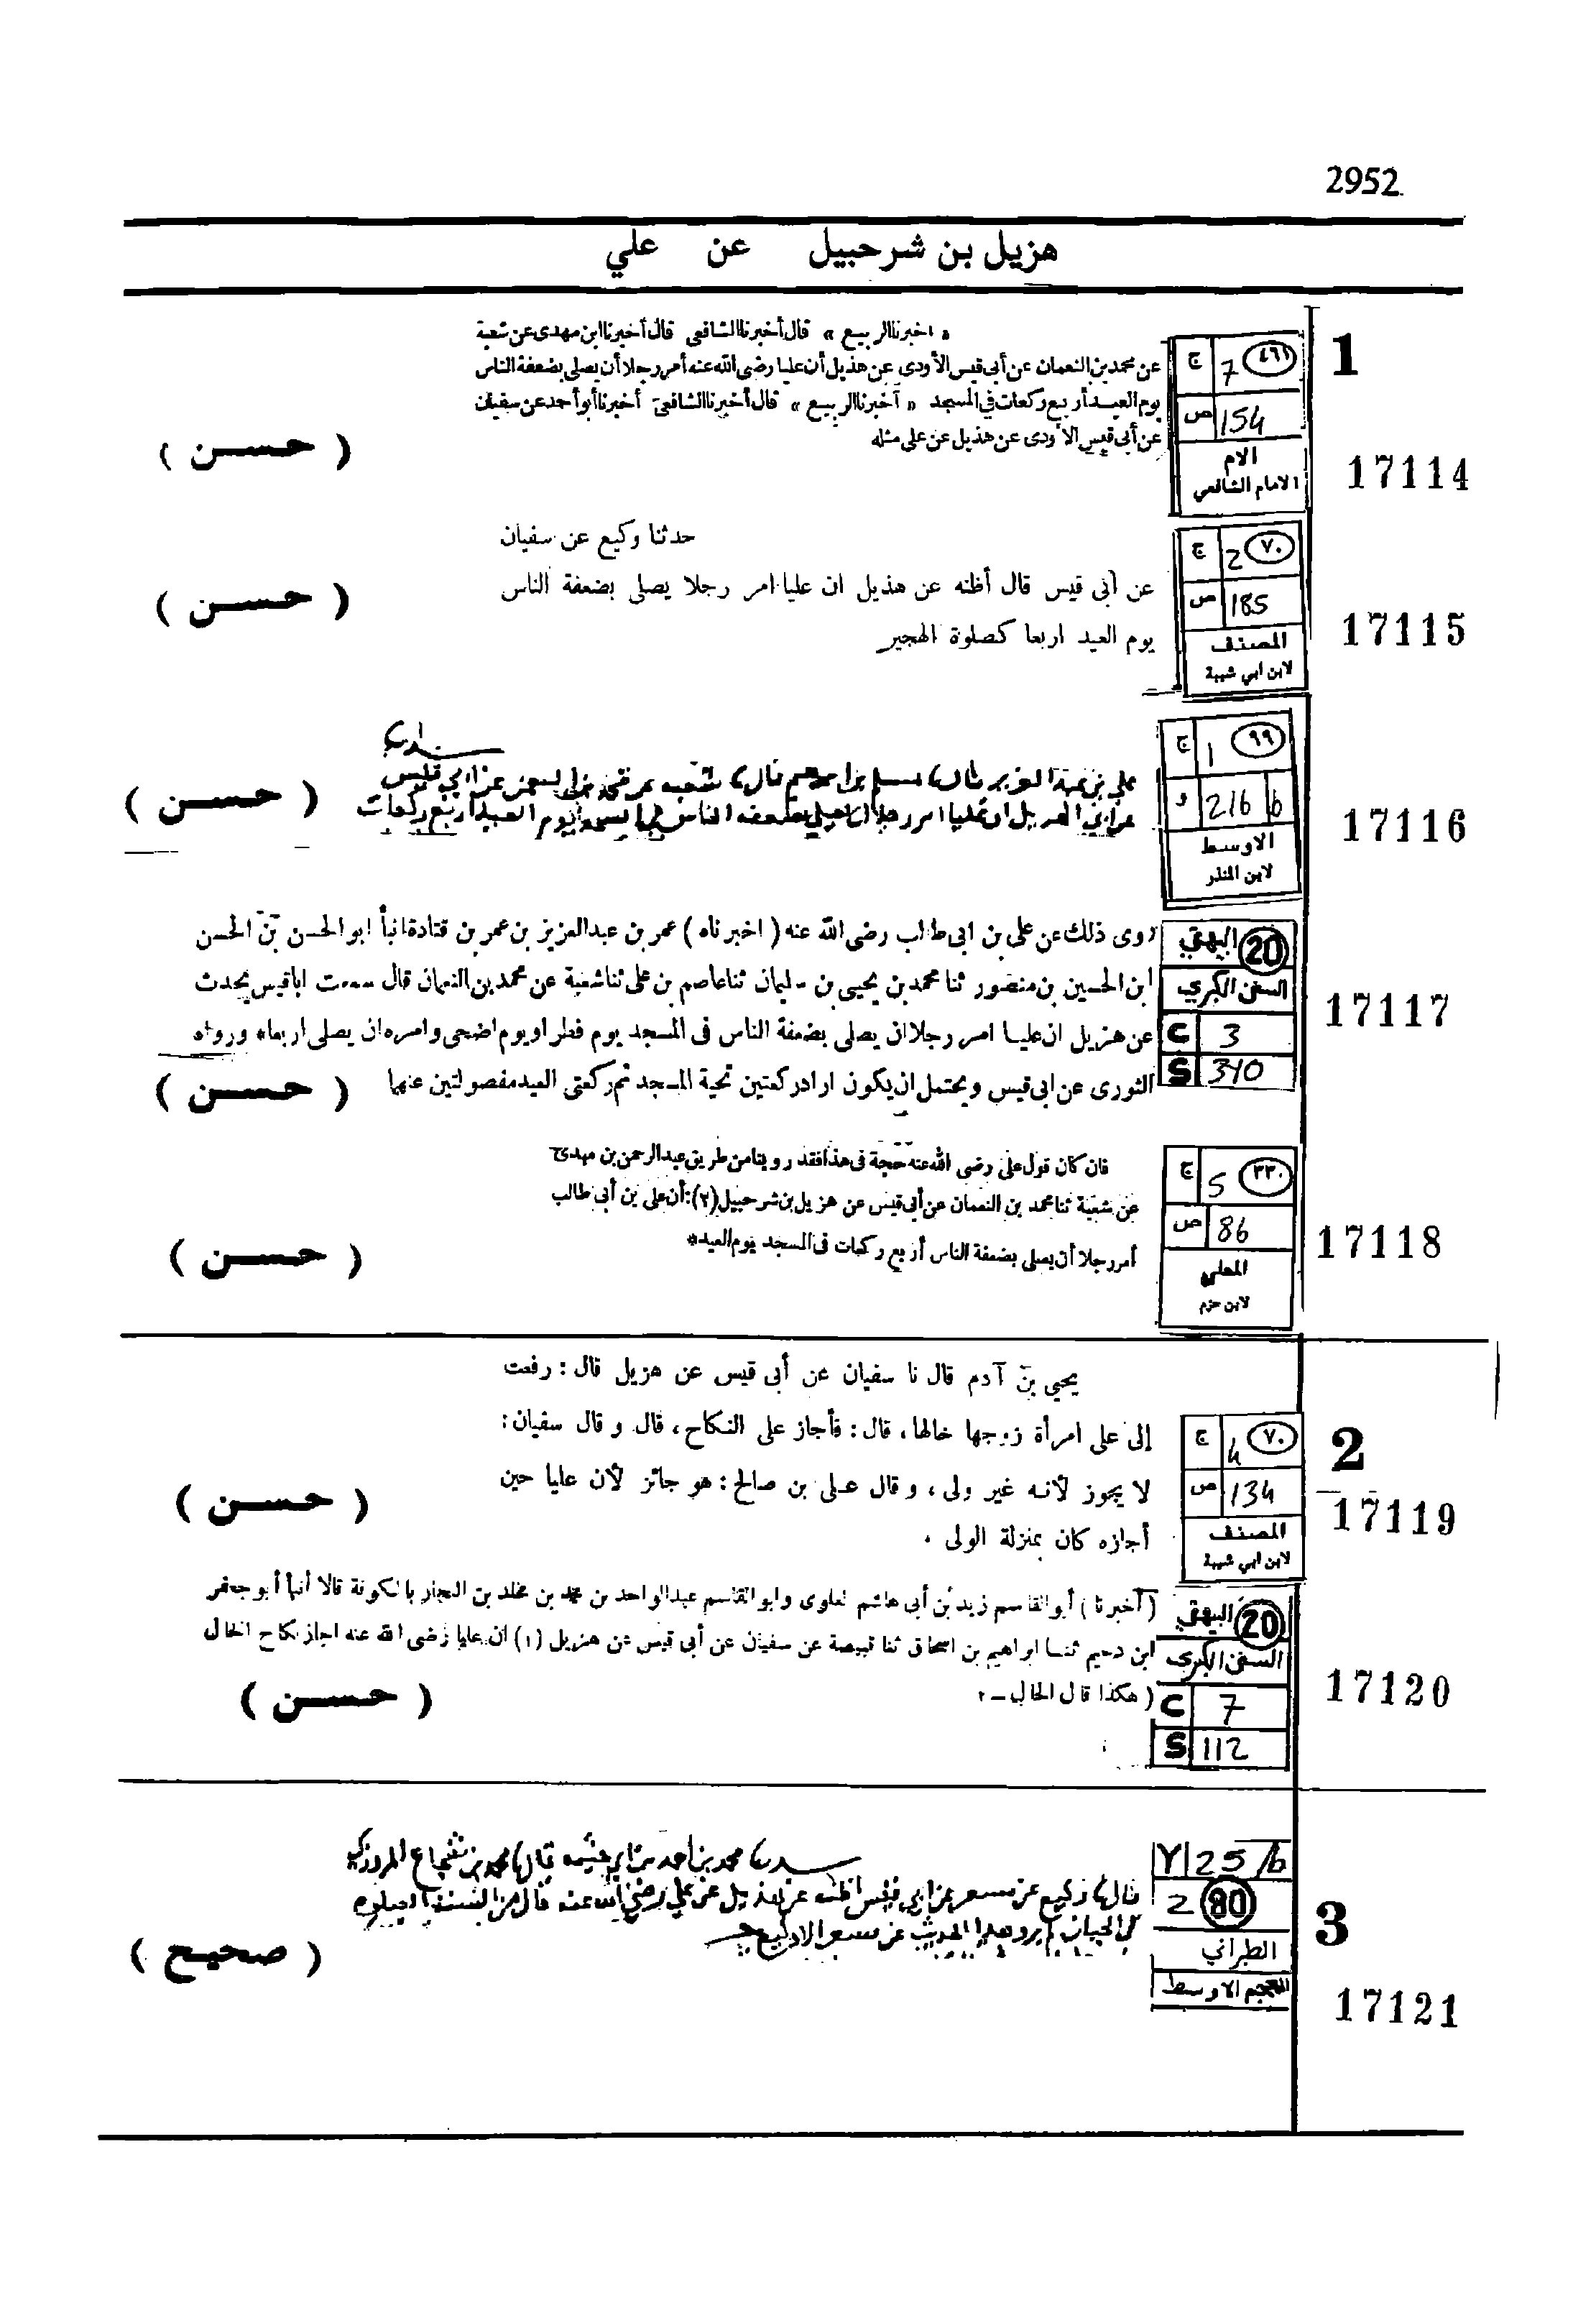 2952
هزيل بن شرحبيل عن علي
1
٤٦١ ج 7
ص 154
الام
الامام الشافعي
17114
« اخبرنا الربيع » قال أخبرنا الشافعى قال أخبرنا ابن مهدى عن شعبة
عن محمد بن النعمان عن أبى قيس الأودى عن هذيل أن عليا رضى الله عنه أمر رجلا أن يصلى بضعفة الناس
يوم العيد أربع ركعات في المسجد « أخبرنا الربيع » قال أخبرنا الشافعى أخبرنا أبو أحمد عن سفيان
عن أبى قيس الأودى عن هذيل عن على مثله
( حسن )
٧٠ ج 2
ص 185
المصنف
لابن ابي شيبة
17115
حدثنا وكيع عن سفيان
عن أبى قيس قال أظنه عن هذيل ان عليا امر رجلا يصلى بضعفة الناس
يوم العيد اربعا كصلوة الهجير
( حسن )
٩٩ ج 1
و 216 b
الاوسط
لابن المنذر
17116
علي بن عبد العزيز قال مسلم بن ابراهيم قال شعبة عن محمد بن النعمن عن ابي قيس
عن ابي الهزيل ان عليا امر رجلا ان يصلي بضعفه الناس في المسجد يوم العيد اربع ركعات
( حسن )
20 البيهقي
السنن الكبري
C 3
S 310
17117
روى ذلك عن على بن ابى طالب رضى الله عنه ( اخبرناه ) عمر بن عبد العزيز بن عمر بن قتادة انبأ ابو الحسن بن الحسن
ابن الحسين بن منصور ثنا محمد بن يحيى بن سليمان ثنا عاصم بن على ثنا شعبة عن محمد بن النعمان قال سمعت ابا قيس يحدث
عن هزيل ان عليا امر رجلا ان يصلى بضعفة الناس فى المسجد يوم فطر او يوم اضحى وامره ان يصلى اربعا* ورواه
الثورى عن ابى قيس ويحتمل ان يكون اراد ركعتين تحية المسجد ثم ركعتى العيد مفصولتين عنهما
( حسن )
٣٣٠ ج 5
ص 86
المحلي
لابن حزم
17118
فان كان قول على رضى الله عنه حجة فى هذا فقد روينا من طريق عبد الرحمن بن مهدى
عن شعبة ثنا محمد بن النعمان عن أبى قيس عن هزيل بن شرحبيل (٢): أن على بن أبى طالب
أمر رجلا أن يصلى بضعفة الناس أربع ركعات فى المسجد يوم العيد*
( حسن )
2
٧٠ ج 4
ص 134
المصنف
لابن ابي شيبة
17119
يحيى بن آدم قال نا سفيان عن أبى قيس عن هزيل قال : رفعت
إلى على امرأة زوجها خالها، قال : فأجاز على النكاح، قال و قال سفيان:
لا يجوز لأنه غير ولى ، و قال على بن صالح : هو جائز لأن عليا حين
أجازه كان بمنزلة الولى .
( حسن )
20 البيهقي
السنن الكبري
C 7
S 112
17120
( أخبرنا ) أبو القاسم زيد بن أبى هاشم العلوى وابو القاسم عبد الواحد بن محمد بن مخلد بن النجار بالكوفة قالا أنبأ أبو جعفر
ابن دحيم ثنا ابراهيم بن اسحاق ثنا قبيصة عن سفيان عن أبى قيس عن هزيل (١) ان عليا رضى الله عنه اجاز نكاح الخال
( هكذا قال الخال -
( حسن )
3
Y 25/b
2 80
الطبراني
المعجم الاوسط
17121
محمد بن احمد بن ابي خيثمه قال محمد بن شجاع المروذي
قال وكيع عن مسعر عن ابي قيس اظنه عن هذيل عن علي رضي الله عنه قال من السنة الصلوه
في الجبان لم يرو هذا الحديث عن مسعر الا وكيع
( صحيح )